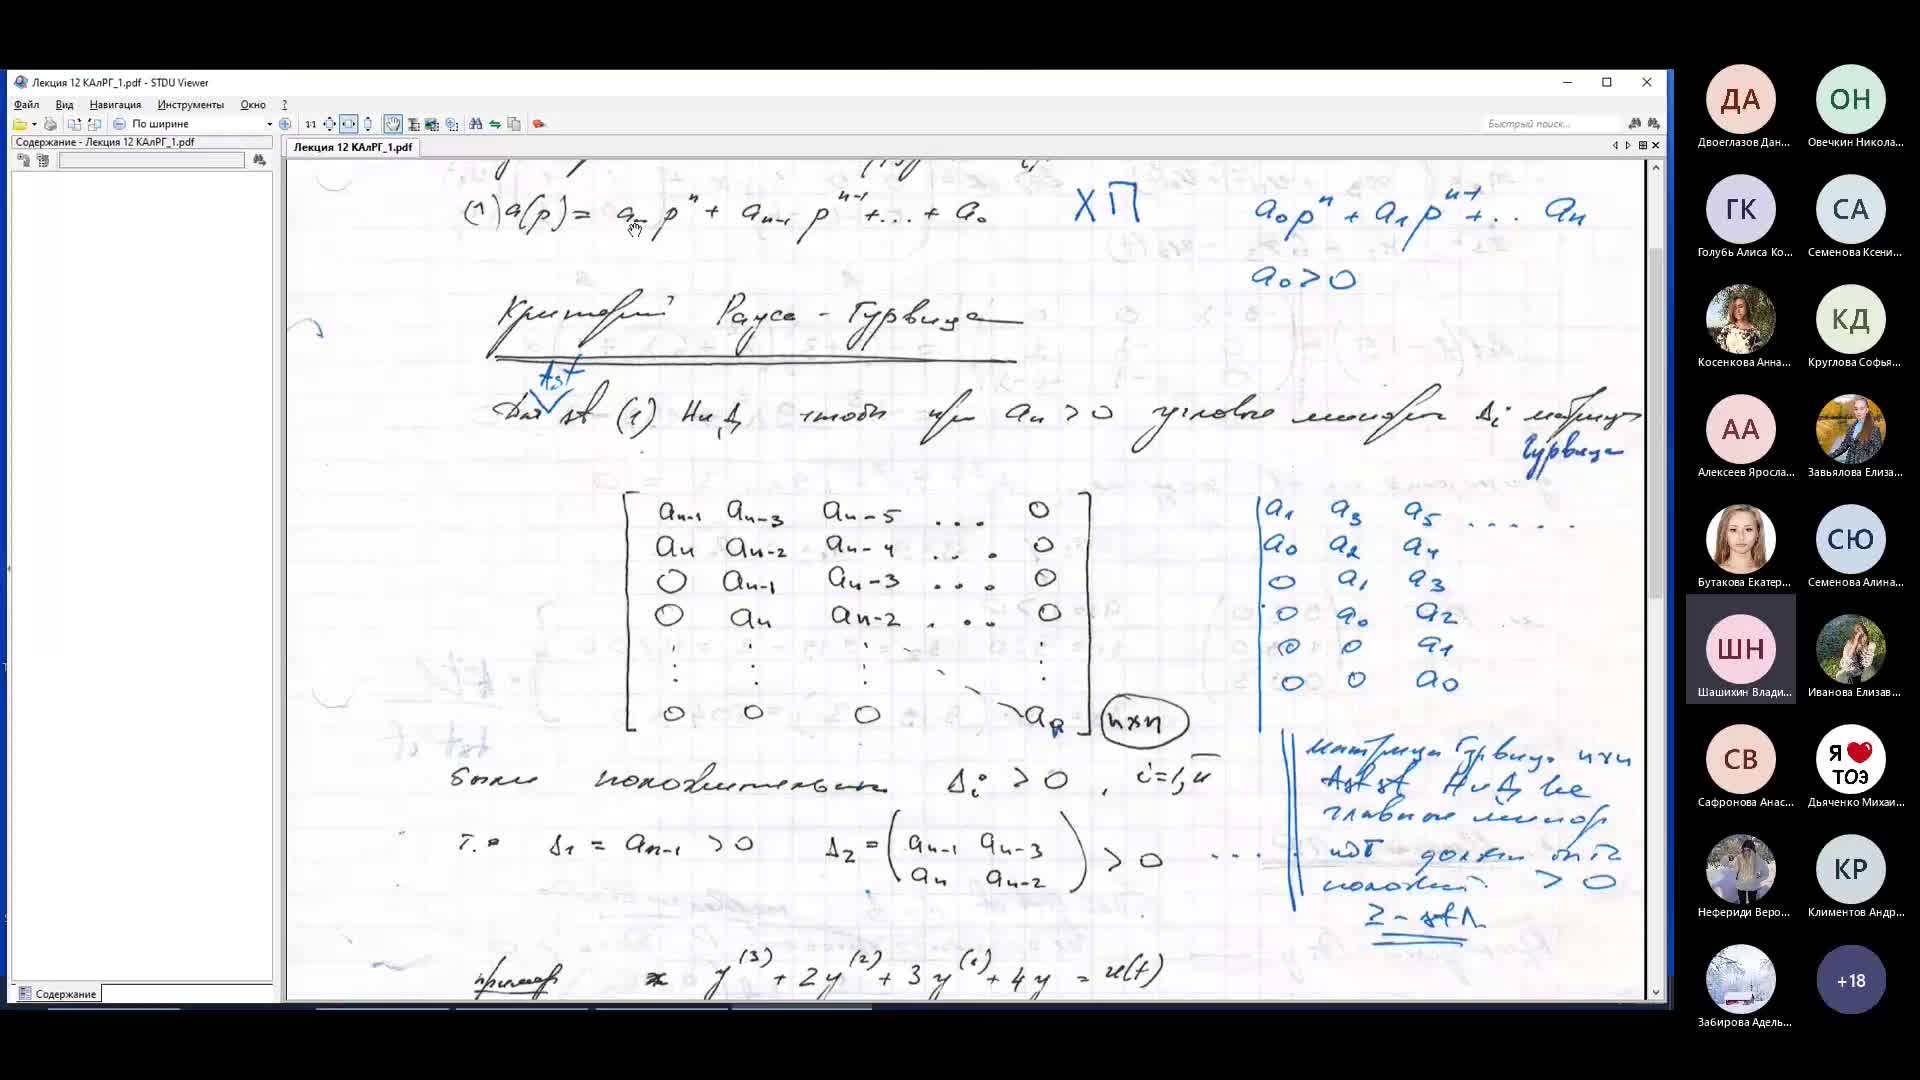 Лекция 12 КАлРГ_1.pdf - STDU Viewer
Файл Вид Навигация Инструменты Окно ?
По ширине
Быстрый поиск...
Содержание - Лекция 12 КАлРГ_1.pdf
Лекция 12 КАлРГ_1.pdf
(1) a(p) = aₙ pⁿ + aₙ₋₁ pⁿ⁻¹ + ... + a₀
ХП
a₀pⁿ + a₁pⁿ⁻¹ + .. aₙ
a₀ > 0
Критерий Рауса - Гурвица
Ast
Для st (1) НиД чтобы при aₙ > 0 угловые миноры Δᵢ матрицы
Гурвица
aₙ₋₁ aₙ₋₃ aₙ₋₅ ... 0
aₙ aₙ₋₂ aₙ₋₄ ... 0
0 aₙ₋₁ aₙ₋₃ ... 0
0 aₙ aₙ₋₂ ... 0
0 0 0
n×n
a₁ a₃ a₅ ......
a₀ a₂ a₄
0 a₁ a₃
0 a₀ a₂
0 0 a₁
0 0 a₀
были положительны Δᵢ > 0 , i = 1,n
т.е Δ₁ = aₙ₋₁ > 0 Δ₂ = ( aₙ₋₁ aₙ₋₃
aₙ aₙ₋₂ ) > 0 ...
матрицы Гурвица n×n
НиД все
главные минор
должн быть
положит. > 0
пример y⁽³⁾ + 2y⁽²⁾ + 3y⁽¹⁾ + 4y = u(t)
Содержание
ДА
Двоеглазов Дан...
ОН
Овечкин Никола...
ГК
Голубь Алиса Ко...
СА
Семенова Ксени...
Косенкова Анна...
КД
Круглова Софья...
АА
Алексеев Яросла...
Завьялова Елиза...
Бутакова Екатер...
СЮ
Семенова Алина...
ШН
Шашихин Влади...
Иванова Елизав...
СВ
Сафронова Анас...
Я ❤ ТОЭ
Дьяченко Михаи...
Нефериди Веро...
КР
Климентов Андр...
Забирова Адель...
+18